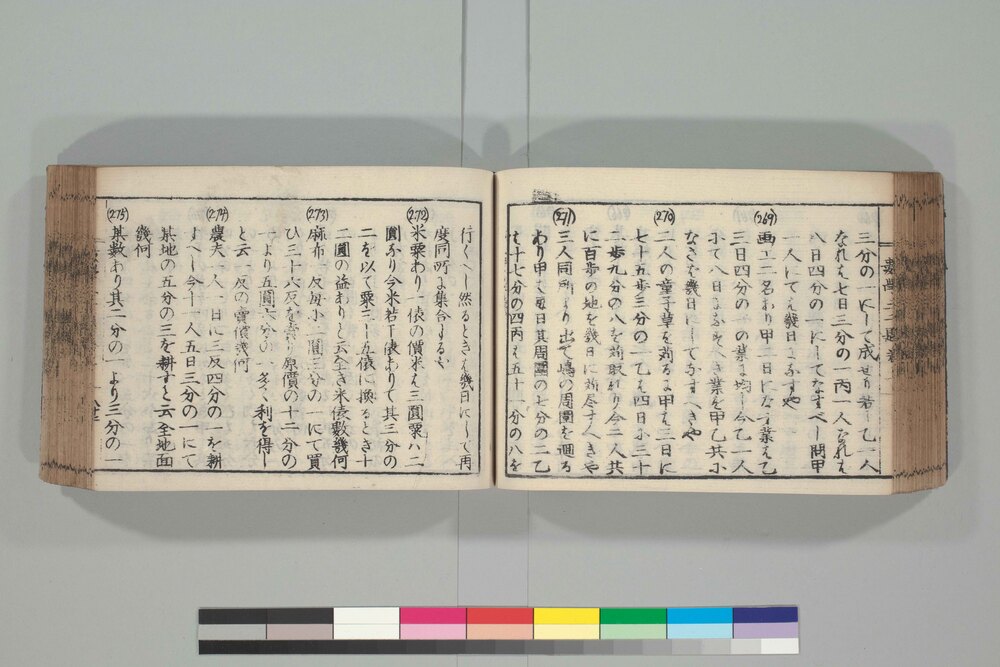 三分の一にして成せり若し乙一人
なれは七日三分の一丙一人なれは
八日四分の一にしてなすべし問甲
一人にては幾日になすや
(269)
画工二名あり甲二日になす業は乙
三日四分の一の業に均し今乙一人
にて八日になすべき業を甲乙共に
なさは幾日にしてなすへきや
(270)
二人の童子草を苅るに甲は三日に
七十五歩三分の一乙は四日に三十
二歩九分の八を苅取れり今二人共
に百歩の地を幾日に苅尽すへきや
(271)
三人同所より出て嶋の周圍を廻る
あり甲は毎日其周圍の七分の二乙
は十七分の四丙は五十一分の八を
行くへし然るときは幾日にして再
度同所に集合するや
(272)
米粟あり一俵の價米は三圓粟ハ二
圓なり今米若干俵ありて其三分の
二を以て粟三十五俵に換るとき十
二圓の益ありと云全き米俵数幾何
(273)
麻布一反毎に二圓三分の一にて買
ひ三十六反を賣り原價の十二分の
一より五圓六分の一多く利を得し
と云一反の賣價幾何
(274)
農夫一人一日に三反四分の一を耕
すへし今十一人五日三分の一にて
某地の五分の三を耕すと云全地面
幾何
(275)
某数あり其二分の一より三分の一